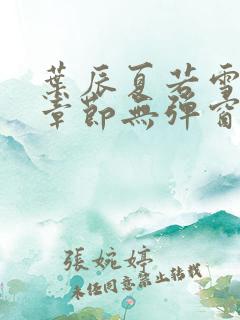 葉辰夏若雪
章節無彈窗
張婉婷
未經同意禁止轉載